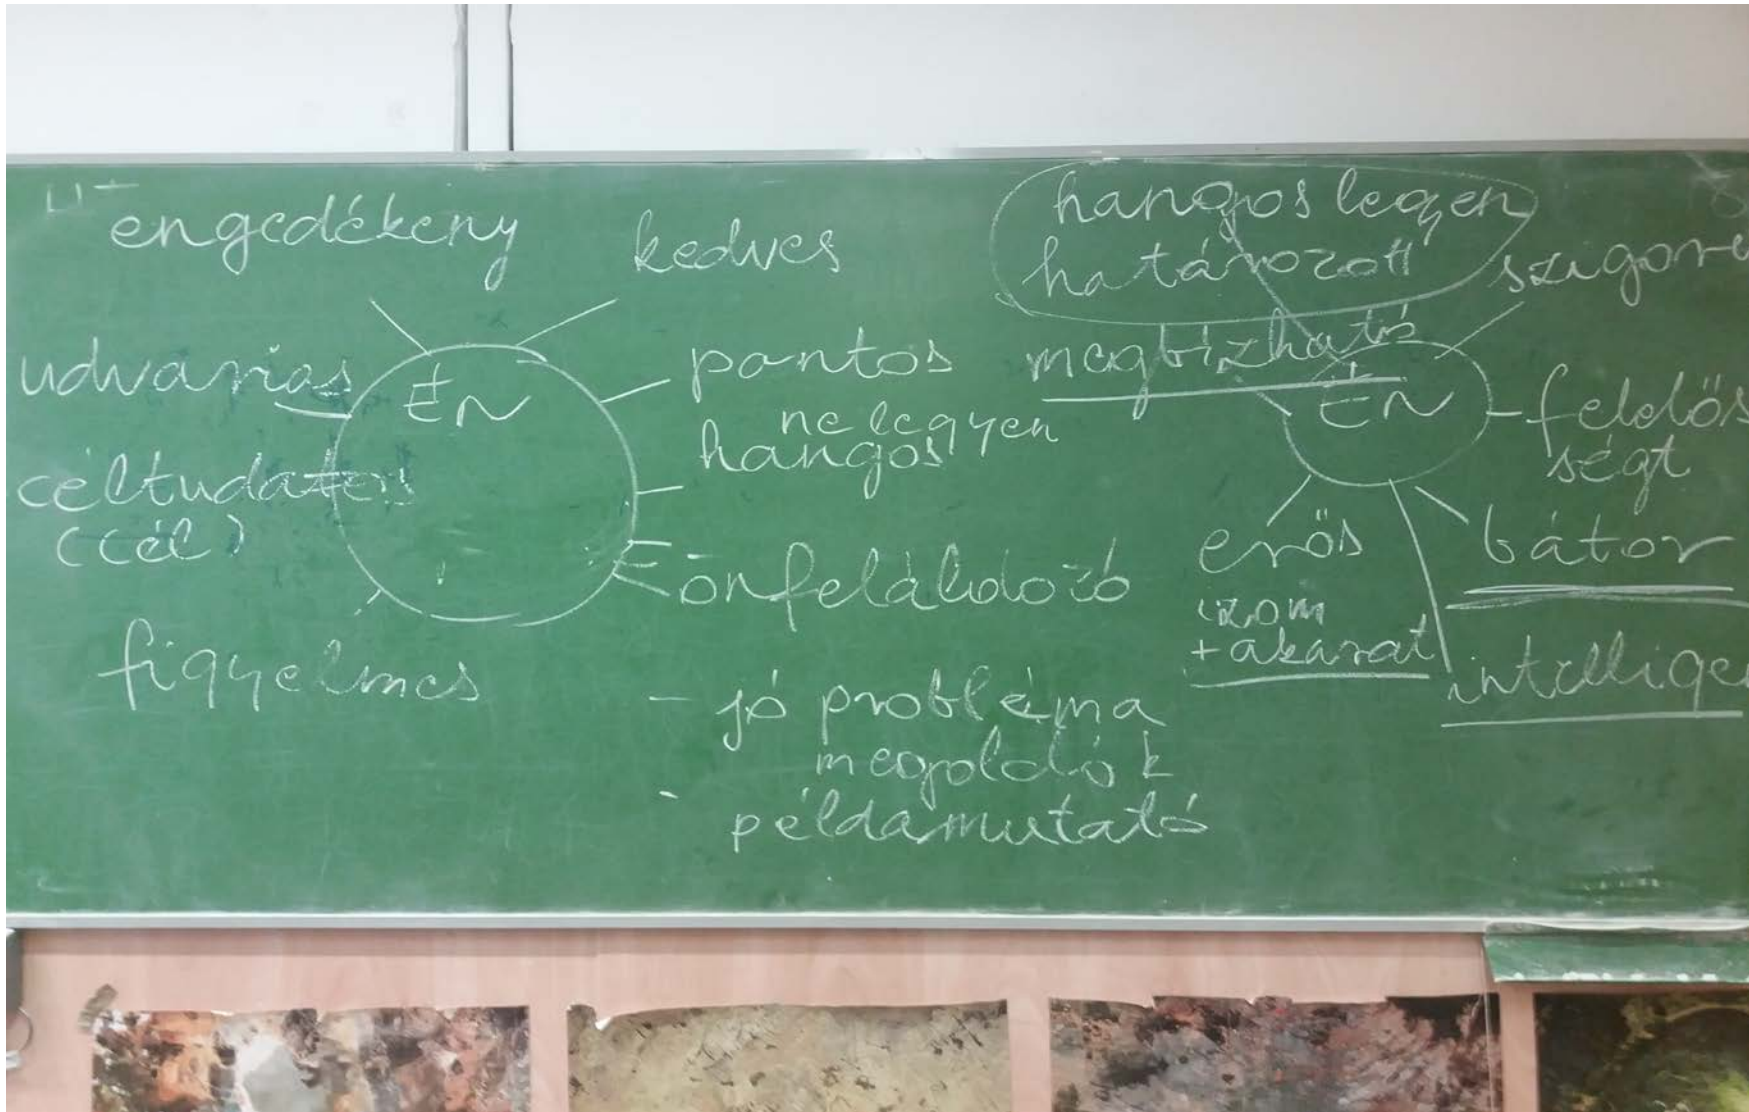 engedékeny
kedves
udvarias
ÉN
pontos
ne legyen
hangos
céltudatos
(cél)
önfeláldozó
figyelmes
- jó probléma
megoldók
- példamutató
hangos legyen
határozott
szigorú
megbízható
ÉN
felelős
ségt
erős
izom
+ akarat
bátor
intellige